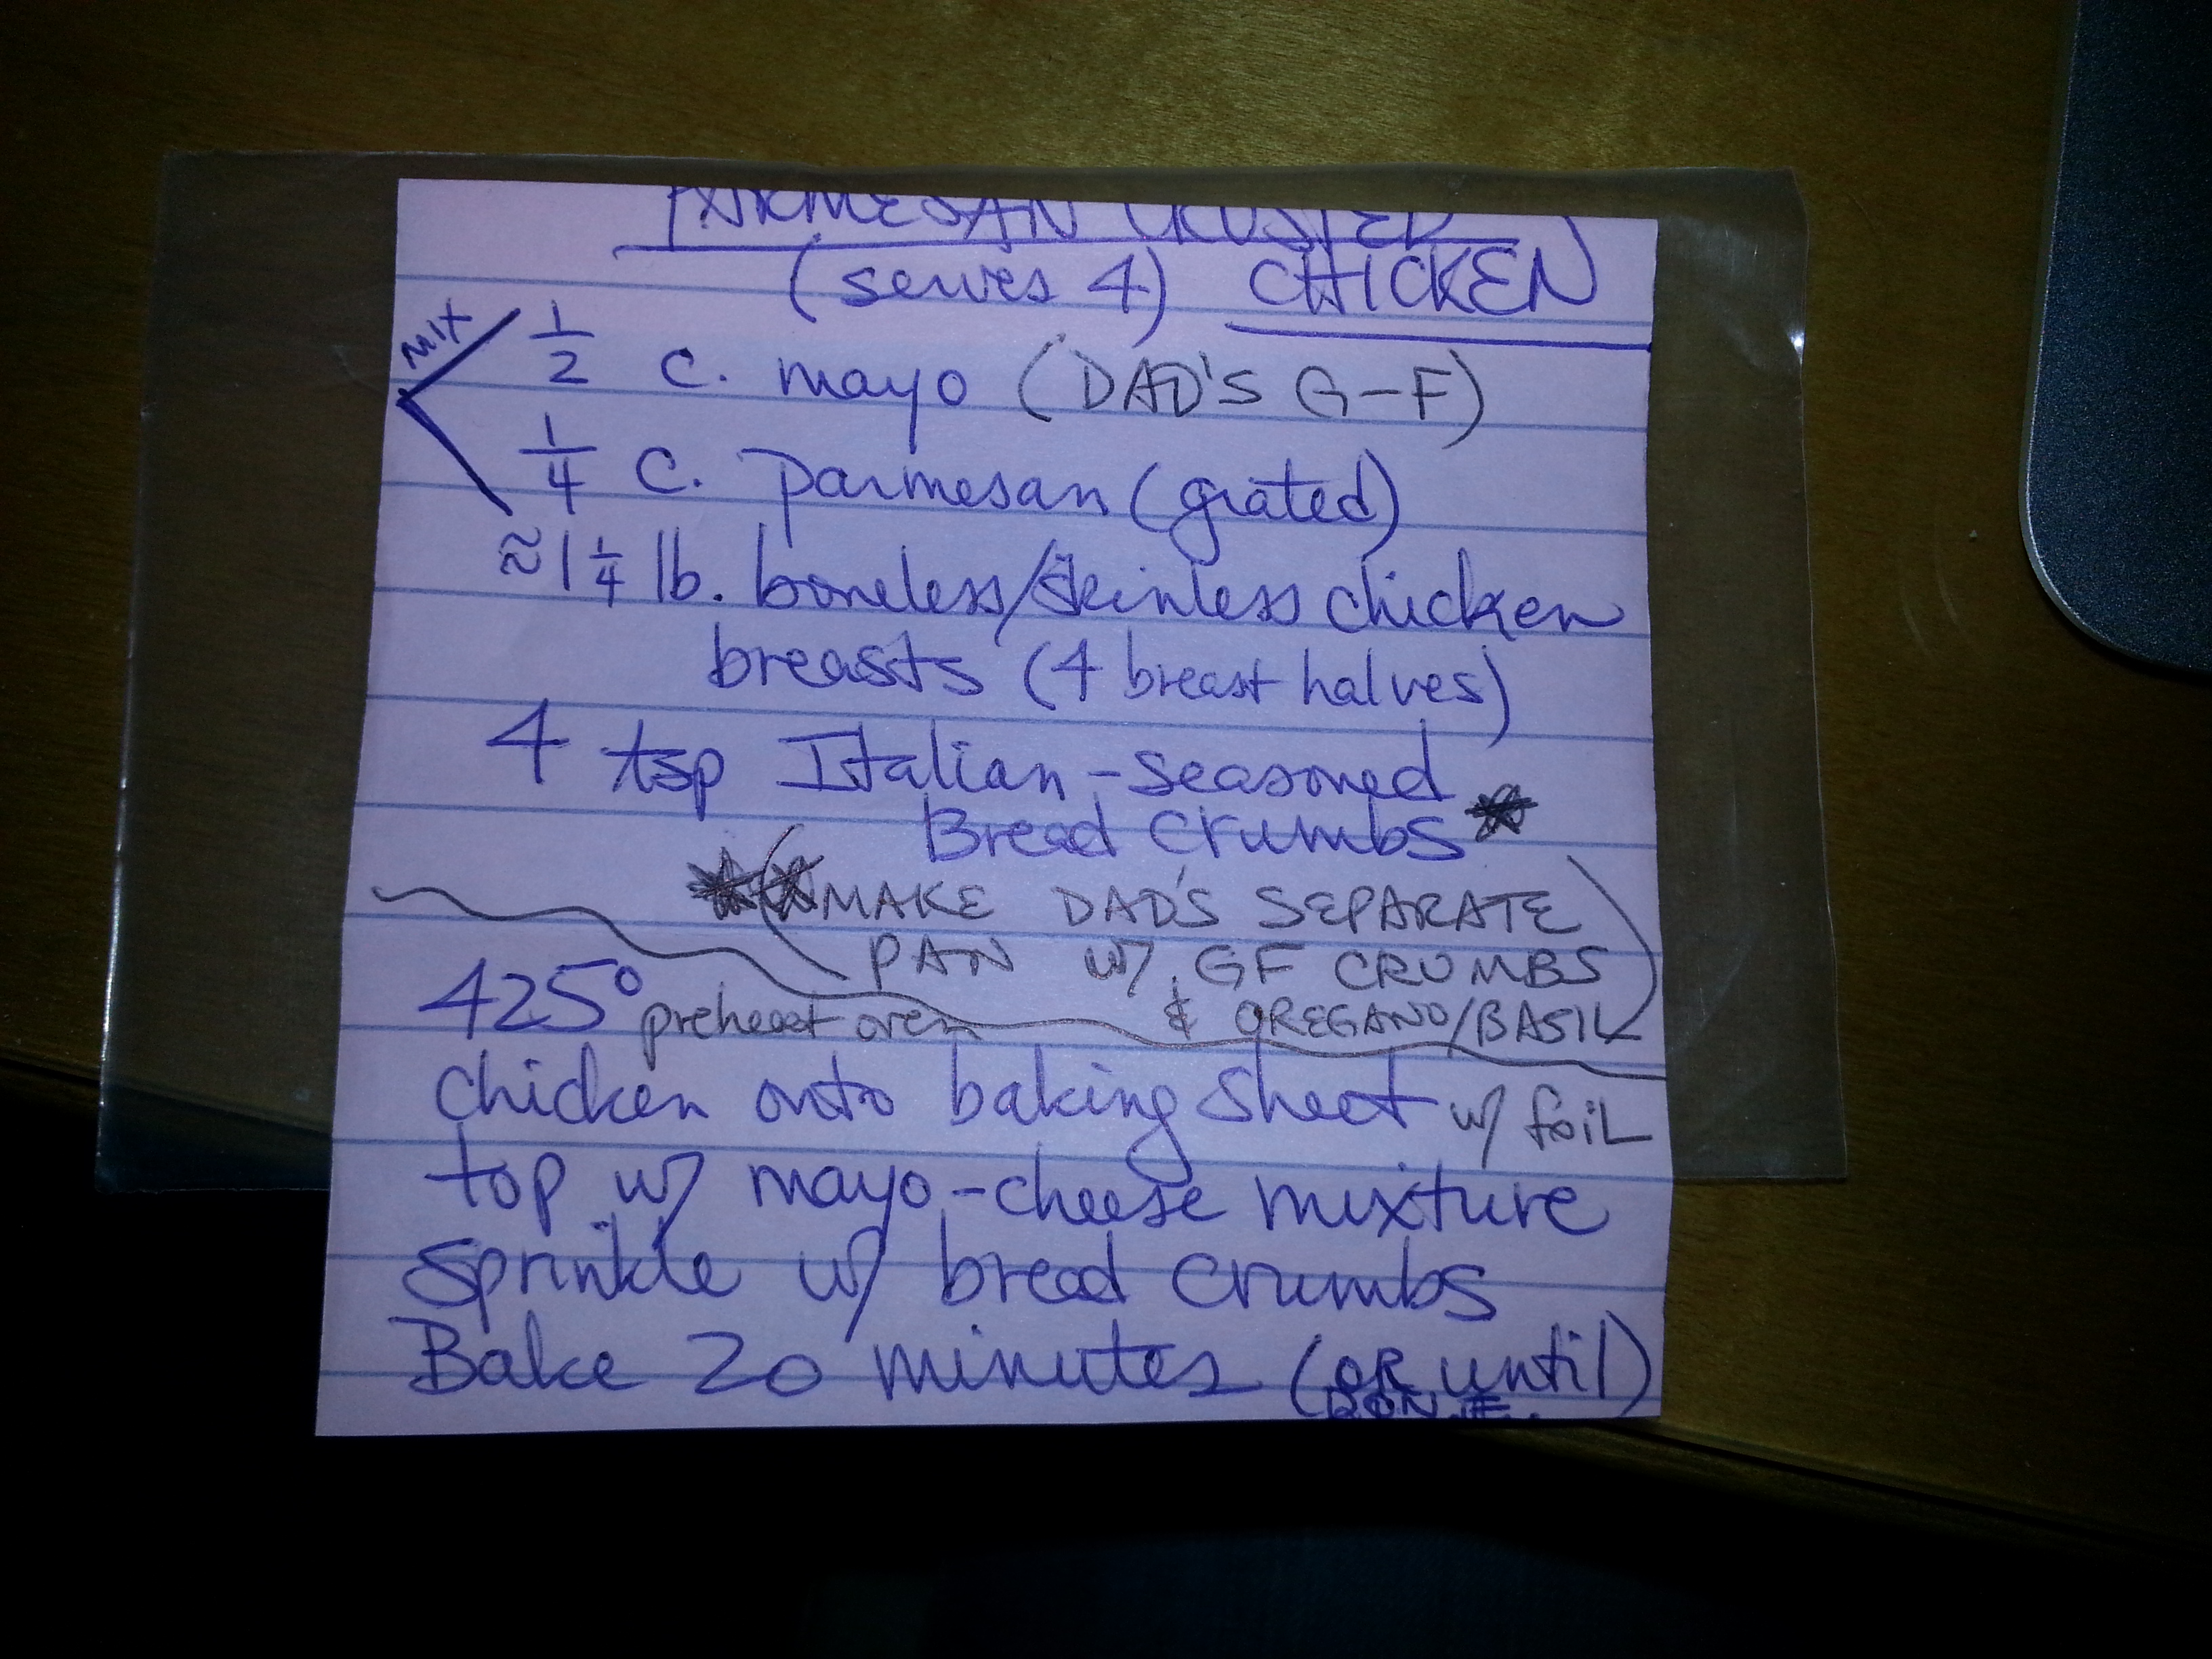 PARMESAN CRUSTED
(serves 4) CHICKEN
MIX
1/2 c. mayo (DAD'S G-F)
1/4 c. parmesan (grated)
≈1 1/4 lb. boneless/skinless chicken
breasts (4 breast halves)
4 tsp Italian-seasoned
Bread crumbs ★
★(★MAKE DAD'S SEPARATE
PAN w/ GF CRUMBS
& OREGANO/BASIL)
425° preheat oven
chicken onto baking sheet w/ foil
top w/ mayo-cheese mixture
sprinkle w/ bread crumbs
Bake 20 minutes (OR until)
DONE